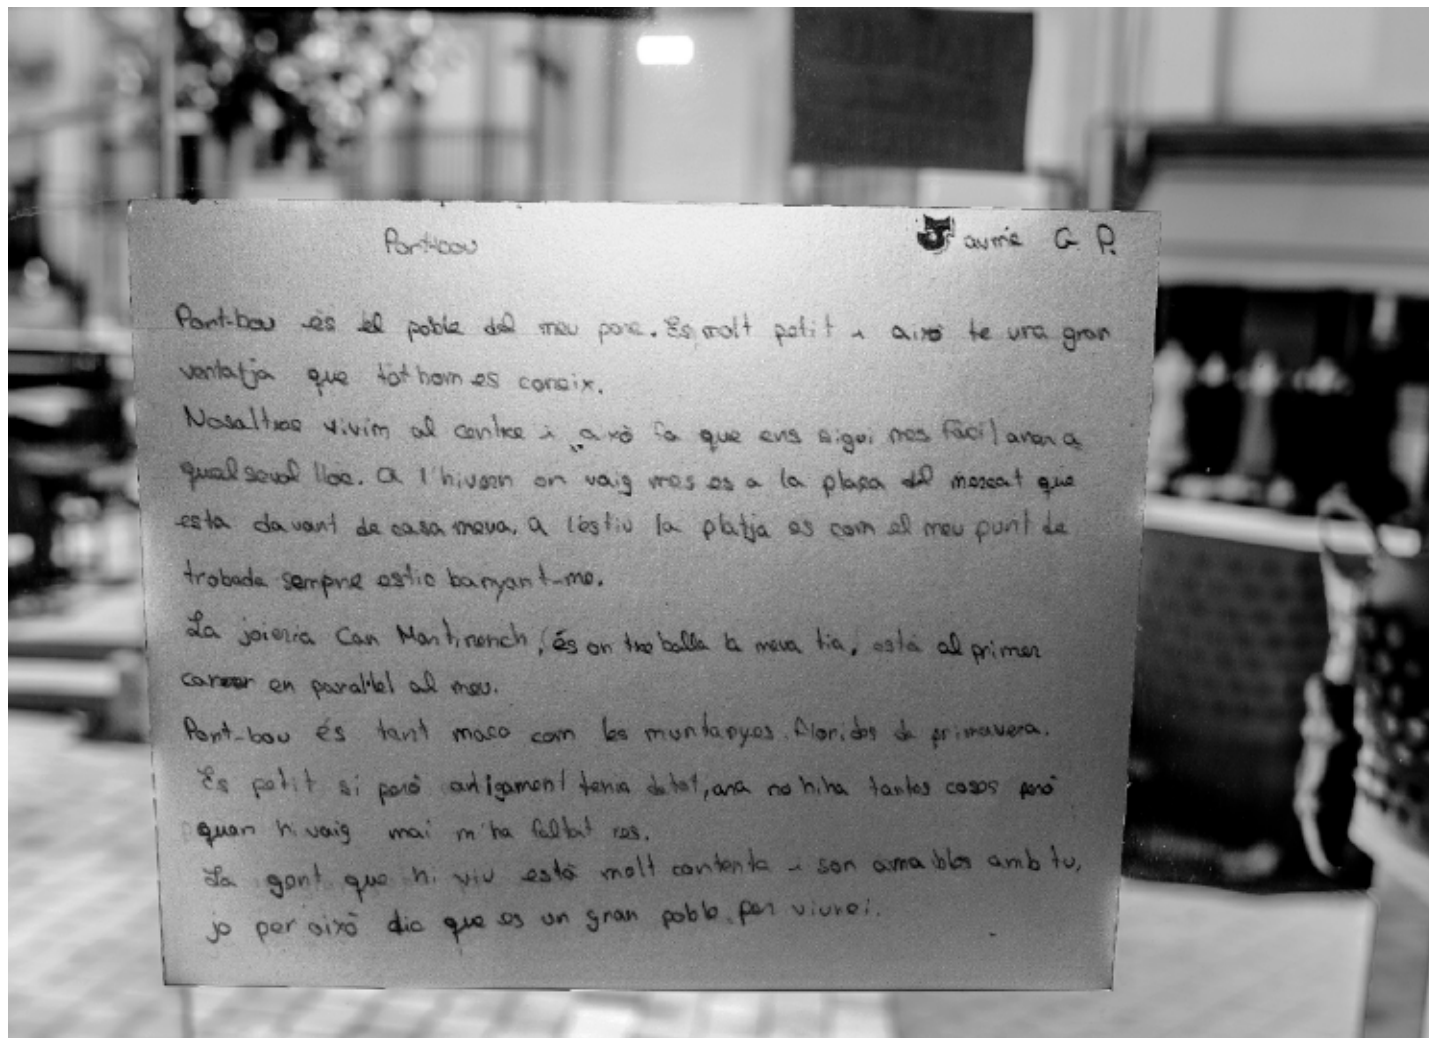 Port-bou
Jaume G P.
Port-bou és el poble del meu pare. Es molt petit i això te una gran
ventatja que tothom es coneix.
Nosaltres vivim al centre i això fa que ens sigui mes fàcil anar a
qualsevol lloc. A l'hivern on vaig mes es a la plaça del mercat que
esta davant de casa meva, a l'estiu la platja es com el meu punt de
trobada sempre estic banyant-me.
La joieria Can Martinench, és on treballa la meva tia, està al primer
carrer en paral·lel al meu.
Port-bou és tant maco com les muntanyes floridas de primavera.
Es petit si però antigament tenia de tot, ara no hi ha tantes coses però
quan hi vaig mai m'ha faltat res.
La gent que hi viu està molt contenta i son amables amb tu,
jo per això dic que es un gran poble per viurei.